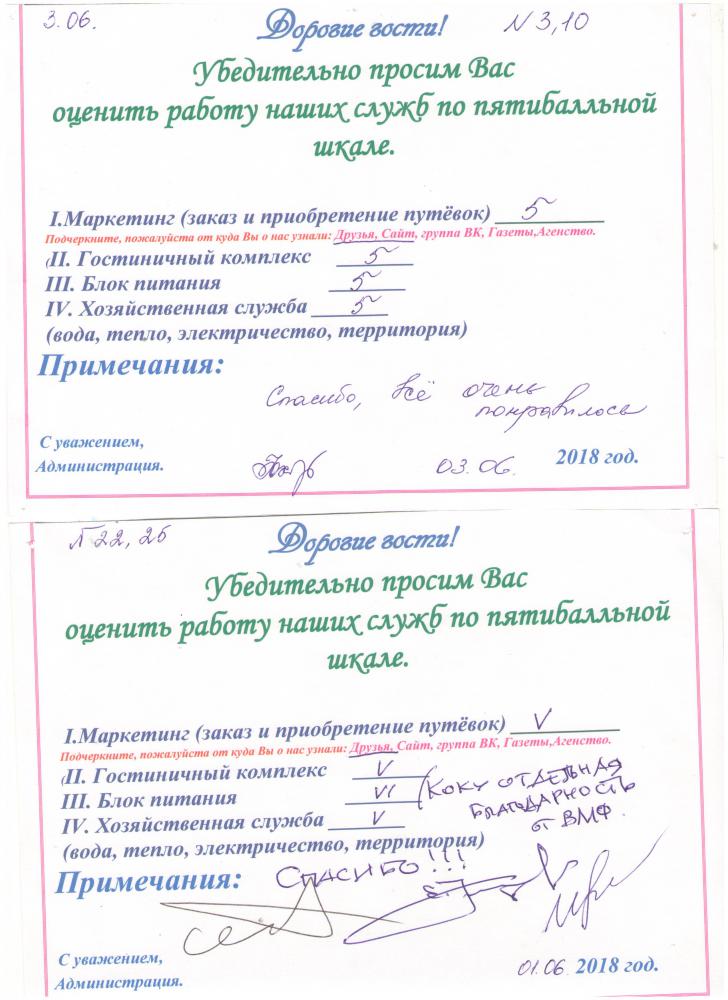 3.06.
Дорогие гости!
N 3,10
Убедительно просим Вас
оценить работу наших служб по пятибалльной
шкале.
I.Маркетинг (заказ и приобретение путёвок) 5
Подчеркните, пожалуйста от куда Вы о нас узнали: Друзья, Сайт, группа ВК, Газеты,Агенство.
(II. Гостиничный комплекс 5
III. Блок питания 5
IV. Хозяйственная служба 5
(вода, тепло, электричество, территория)
Примечания:
Спасибо, всё очень
понравилось
С уважением,
Администрация.
03.06. 2018 год.
N 22, 25
Дорогие гости!
Убедительно просим Вас
оценить работу наших служб по пятибалльной
шкале.
I.Маркетинг (заказ и приобретение путёвок) V
Подчеркните, пожалуйста от куда Вы о нас узнали: Друзья, Сайт, группа ВК, Газеты,Агенство.
(II. Гостиничный комплекс V
III. Блок питания VI (КОКУ ОТДЕЛЬНАЯ
БЛАГОДАРНОСТЬ
от ВМФ.
IV. Хозяйственная служба V
(вода, тепло, электричество, территория)
Примечания: СПАСИБО!!!
С уважением,
Администрация.
01.06. 2018 год.